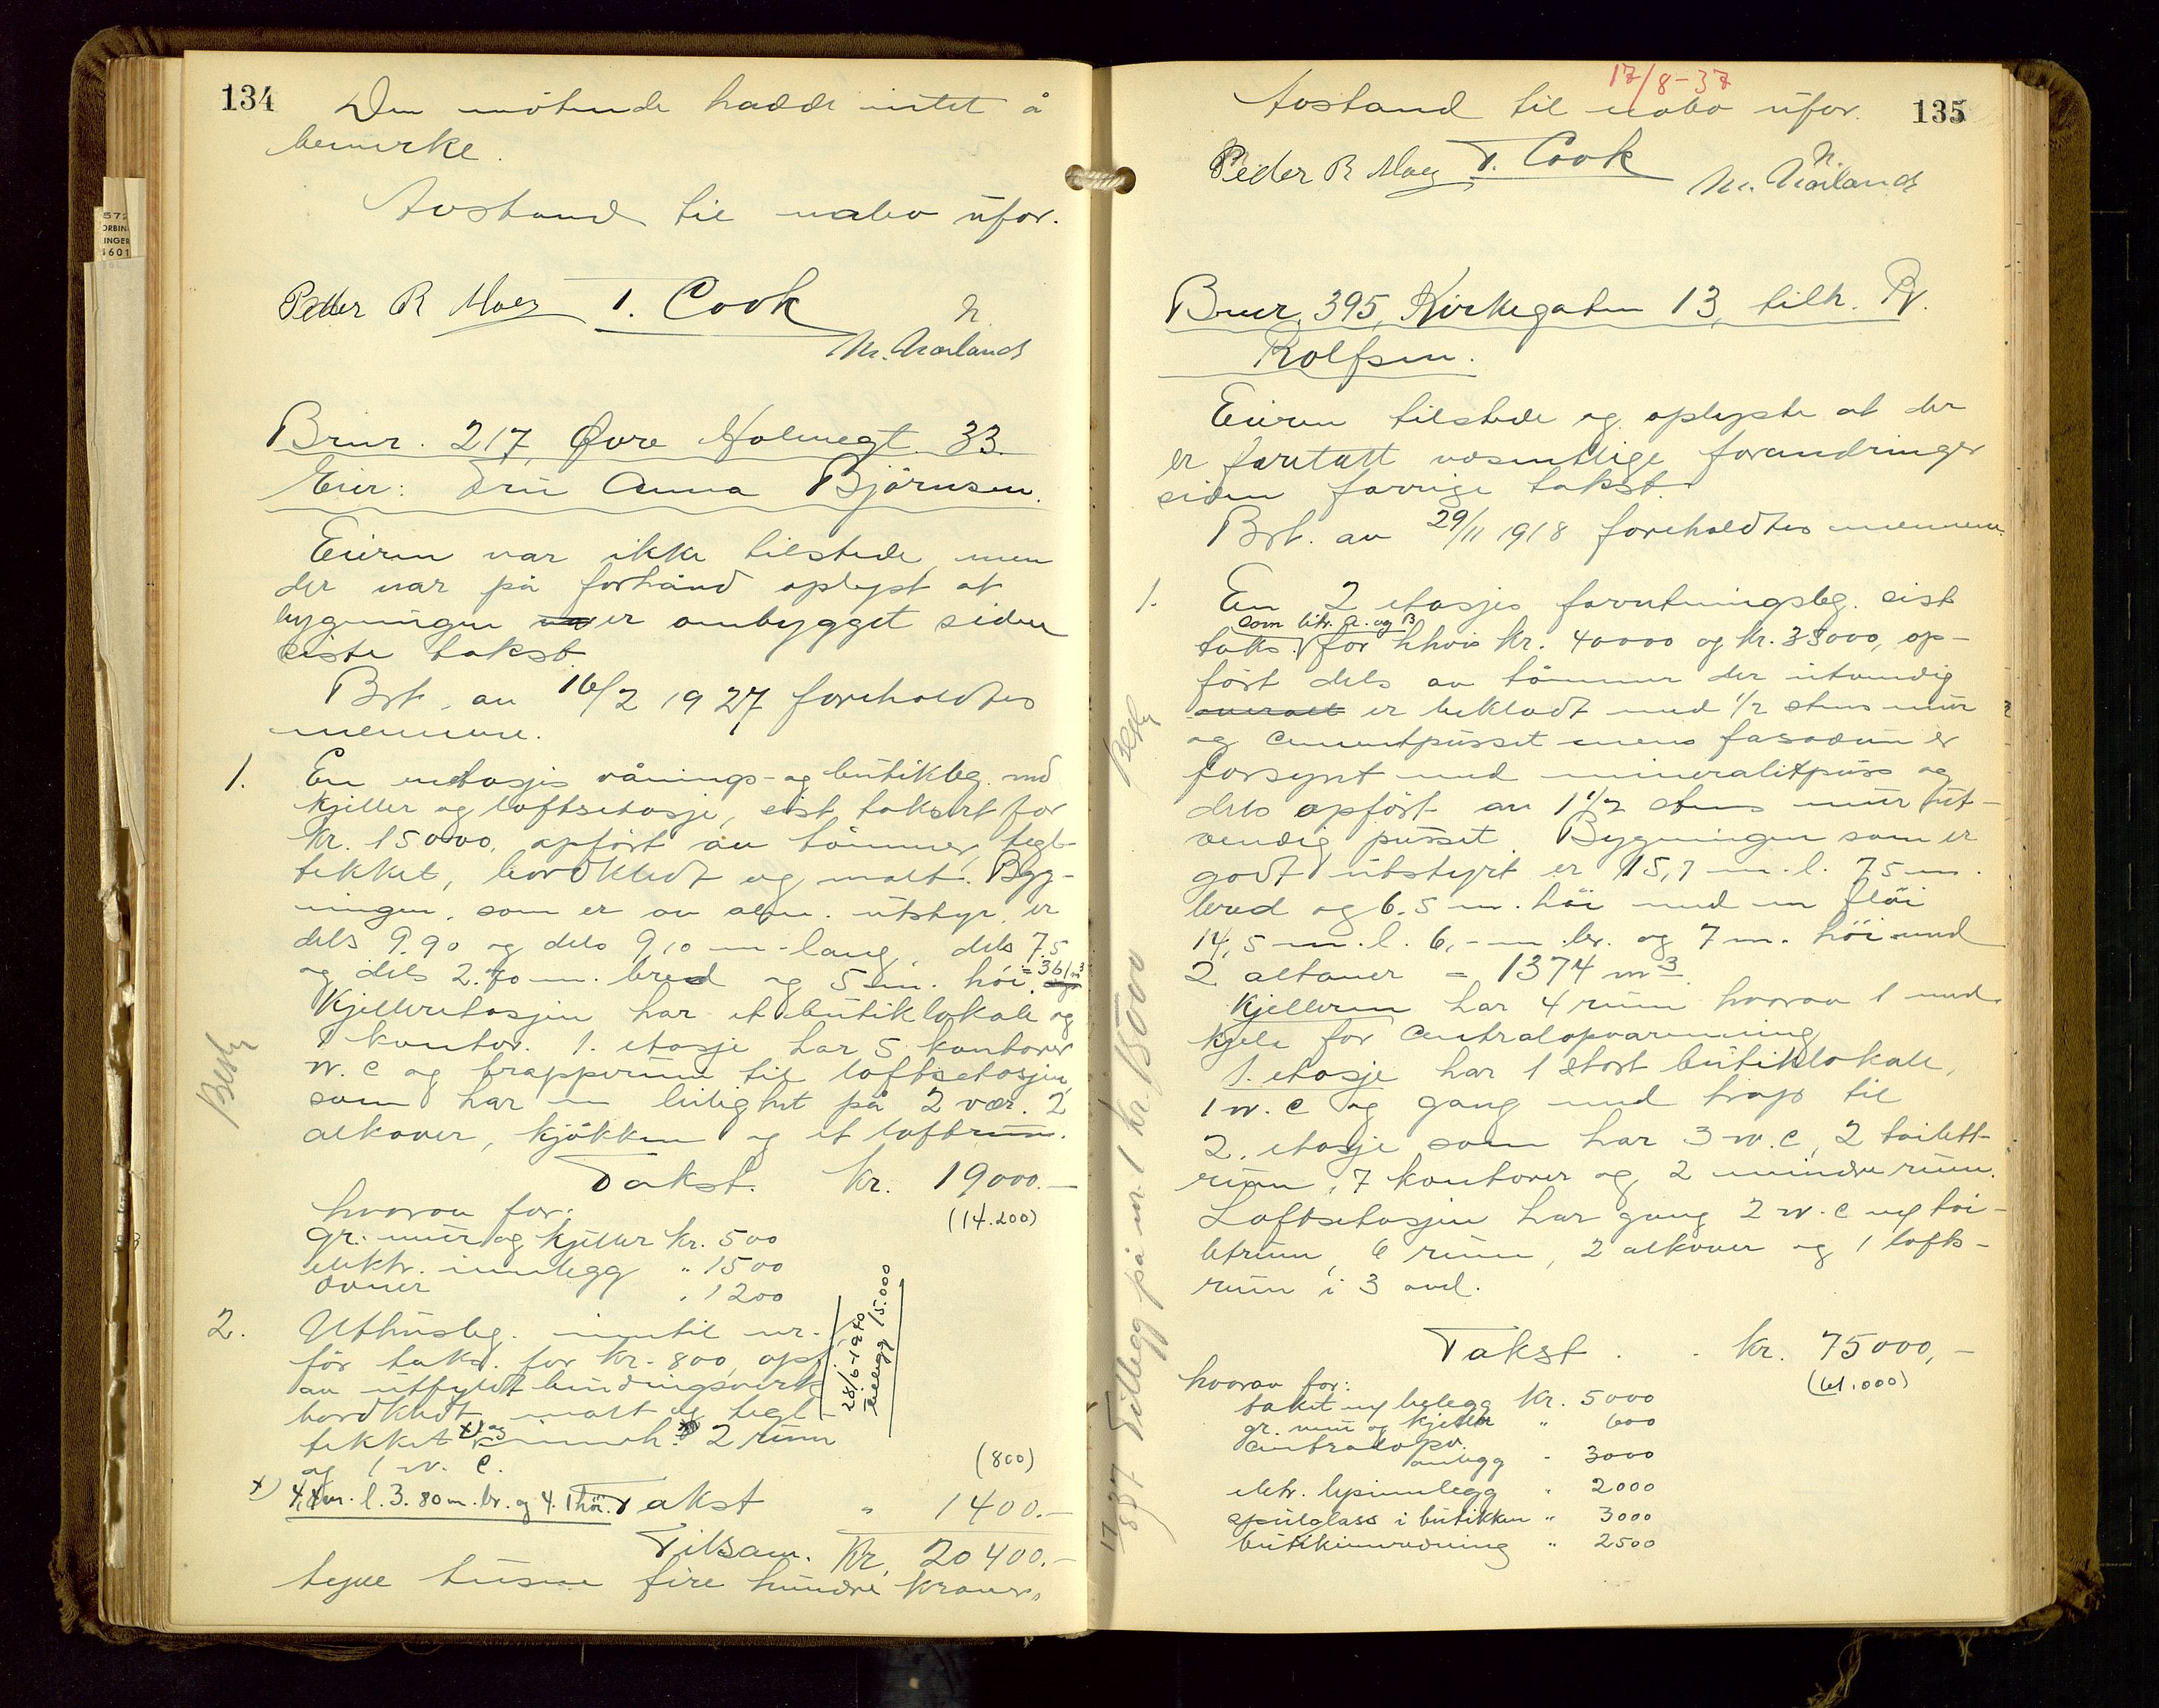 134
Den møtende hadde intet å
bemerke.
Avstand til nabo ufor.
Peder R Moey T. Cook
N.
M. Nærland
Brnr. 217, Øvre Holmegt. 33.
Eier: Fru Anna Björnsen.
Eieren var ikke tilstede, men
der var på forhånd oplyst at
bygningen er ombygget siden
siste takst.
Brt. av 16/2 1927 foreholdtes
mennene.
1. En enetasjes vånings- og butikbg. med
kjeller og loftsetasje, sist taksert for
kr. 15000, opført av tømmer, tegl-
tekket, bordklædt og malt. Byg-
ningen, som er av alm. utstyr, er
dels 9.90 og dels 9,10 m. lang, dels 7.5
og dels 2.70 m. bred og 5 m. høi. = 361 m³
Kjelleretasjen har et butiklokale og
1 kontor. 1. etasje har 5 kontorer
W.C og trapperum til loftsetasjen,
som har en leilighet på 2 vær. 2
alkover, kjøkken og et loftrum.
Besty
Takst. Kr. 19000.-
(14.200)
hvorav for:
gr. mur og kjeller kr. 500
elektr. innlegg " 1500
ovner " 1200
2. Uthusbg. inntil nr. 1
før taks. for kr. 800, opf.
av utfyldt bindingsverk
bordklædt malt og tegl-
tekket x) og inneh. 2 rum
og 1 W.C.
28/6-1940
tillegg 15.000
(800)
x) 4,4 m. l. 3.80 m. br. og 4.1 høi. Takst " 1400.-
Tilsam. Kr. 20400.-
tyve tusen fire hundre kroner.
17/8-37
135
Avstand til nabo ufor.
Peder R Moey T. Cook
N.
M. Nærland
Brnr. 395, Kirkegaten 13, tilh. W.
Rolfsen.
Eieren tilstede og oplyste at der
er foretatt væsentlige forandringer
siden forrige takst.
Brt. av 29/11 1918 foreholdtes mennene.
1. En 2 etasjes forretningsbg. sist
som litr. A. og B
taks. for hhvis kr. 40000 og kr. 35000, op-
ført dels av tømmer der utvendig
overalt er beklædt med 1/2 stens mur
og cementpusset mens fasaden er
forsynt med mineralitpuss og
dels opført av 1 1/2 stens mur ut-
vendig pusset. Bygningen som er
godt utstyrt er 15,7 m. l. 7.5 m.
bred og 6.5 m. høi med en fløi
14,5 m. l. 6,- m. br. og 7 m. høi med
2 altaner = 1374 m³.
Kjelleren har 4 rum hvorav 1 med
kjele for centralopvarmning
1. etasje har 1 stort butiklokale,
1 W.C og gang med trap til
2. etasje som har 3 W.C, 2 toilett-
rum, 7 kontorer og 2 mindre rum.
Loftsetasjen har gang 2 W.C og toi-
letrum, 6 rum, 2 alkover og 1 lofts-
rum i 3 avd.
Besty
17/8 37 Tillegg på nr. 1 kr. 15000
Takst . . kr. 75000,-
(61.000)
hvorav for:
taket og belegg kr. 5000
gr. mur og kjeller " 600
centralopv.
anlegg " 3000
elektr. lysinnlegg " 2000
speilglass i butikken " 3000
butikinnredning " 2500